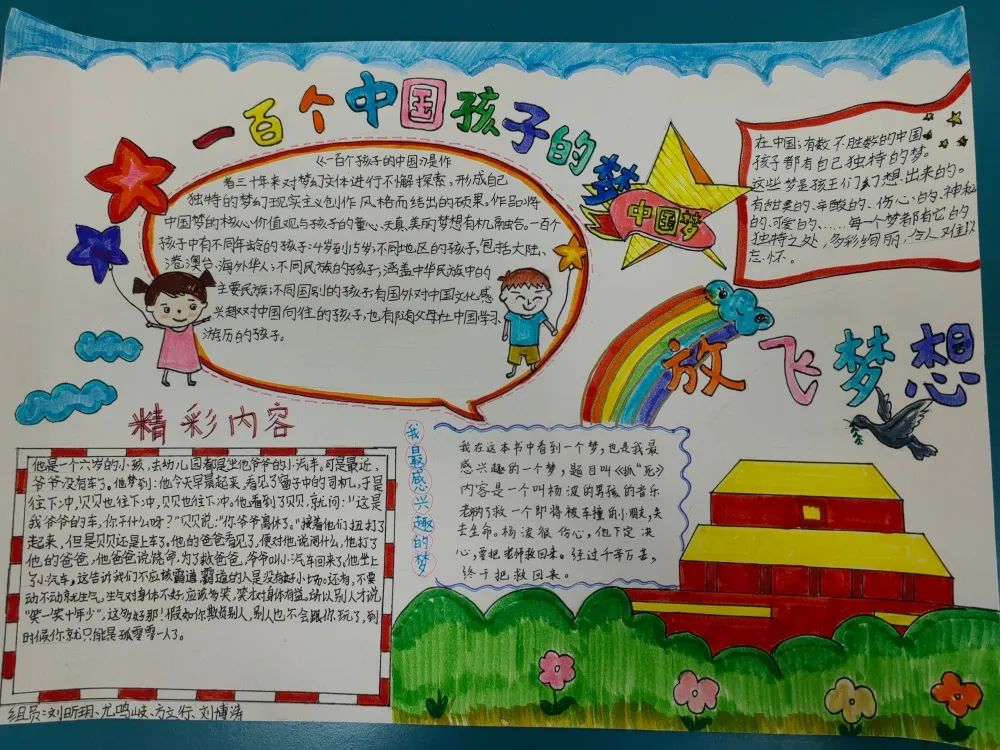 一百个中国孩子的梦
《一百个孩子的中国》是作
者三十年来对梦幻文体进行不懈探索,形成自己
独特的梦幻现实主义创作风格而结出的硕果。作品将
中国梦的核心价值观与孩子的童心、天真、美丽梦想有机融台。一百个
孩子中有不同年龄的孩子:4岁到15岁;不同地区的孩子,包括大陆、
港澳台、海外华人;不同民族的孩子,涵盖中华民族中的
主要民族;不同国别的孩子,有国外对中国文化感
兴趣对中国向往的孩子,也有随父母在中国学习、
游历的孩子。
中国梦
在中国,有数不胜数的中国
孩子都有自己独特的梦。
这些梦是孩子们幻想出来的。
有甜美的、辛酸的、伤心的、神秘
的、可爱的、……每一个梦都有它的
独特之处,多彩绚丽,令人难以
忘怀。
放飞梦想
精彩内容
他是一个六岁的小孩,去幼儿园都是坐他爷爷的小汽车,可是最近,
爷爷没有车了。他梦到:他今天早晨起来,看见了
的司机,于是
往下冲,贝贝也往下冲,贝贝也往下冲。他看到了贝贝,就问:"这是
我爷爷的车,你干什么呀?"贝贝说:"你爷爷离休了。"接着他们扭打了
起来,但是贝贝还是上车了。他的爸爸看见了,便对他说闹什么,他打了
他的爸爸,他爸爸说饶命,为了救爸爸,爷爷叫小汽车回来了。他坐上
了小汽车。这告诉我们不应该霸道,霸道的人是没有好小场。还有,不要
动不动就生气。生气对身体不好,应该多笑,笑对身体有益,所以别人才说
"笑一笑十年少",这多好那!假如你欺负别人,别人也不会跟你玩了,到
时候你就只能是孤零零一人了。
我最感兴趣的梦
我在这本书中看到一个梦,也是我最
感兴趣的一个梦,题目叫《抓"死》
内容是一个叫杨波的男孩的音乐
老师为了救一个即将被车撞的小朋友,失
去生命。杨波很伤心,他下定决
心,要把老师救回来。经过千辛万苦,
终于把救回来。
组员:刘昕玥、尤鸣岐、方文行、刘博涛